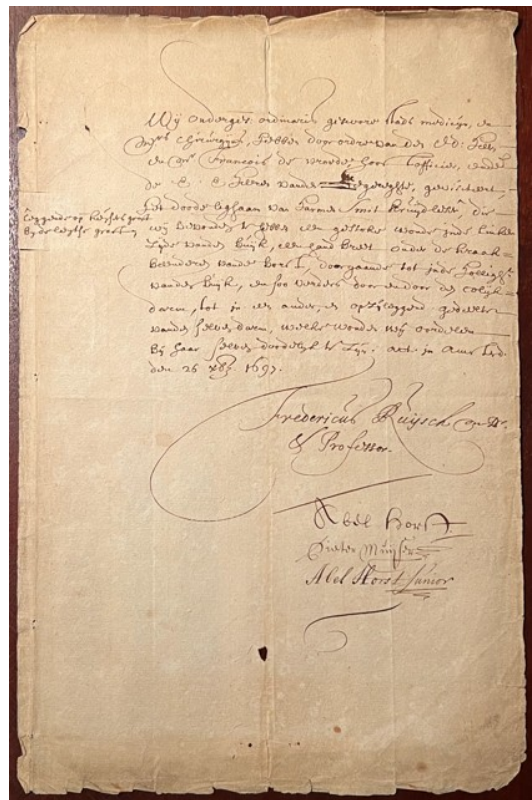 Wij ondergeš ordinaris geswore stads medicijn, en
chirurgijns, hebben door ordre van den Ed. Heer
en mr. Francois de vroede hooft officier, ende
de E. E. Heeren vanden geregte, gevisiteert,
Leggende op Keysers graft
by de leytse graft
het doode lighaam van Harmen Smit kruydelett die
wij bevonden te hebben een gestoke wonde inde linker
zijde vanden buijk, een hand breet onder de kraak=
beenderen vande borst, doorgaande tot inde holligh
vanden buijk, en soo verders door en door de colijk
darm, tot in een ander, en op zij leggend gedeelte
vanden selven darm, welke wonde wij oordeelen
bij haar selven doodelijk te zijn. act. in Amsterd
den 26 1697.
Fredericus Ruijsch Dr.
& Professor.
Abel Horst
Pieter
Abel Horst Junior